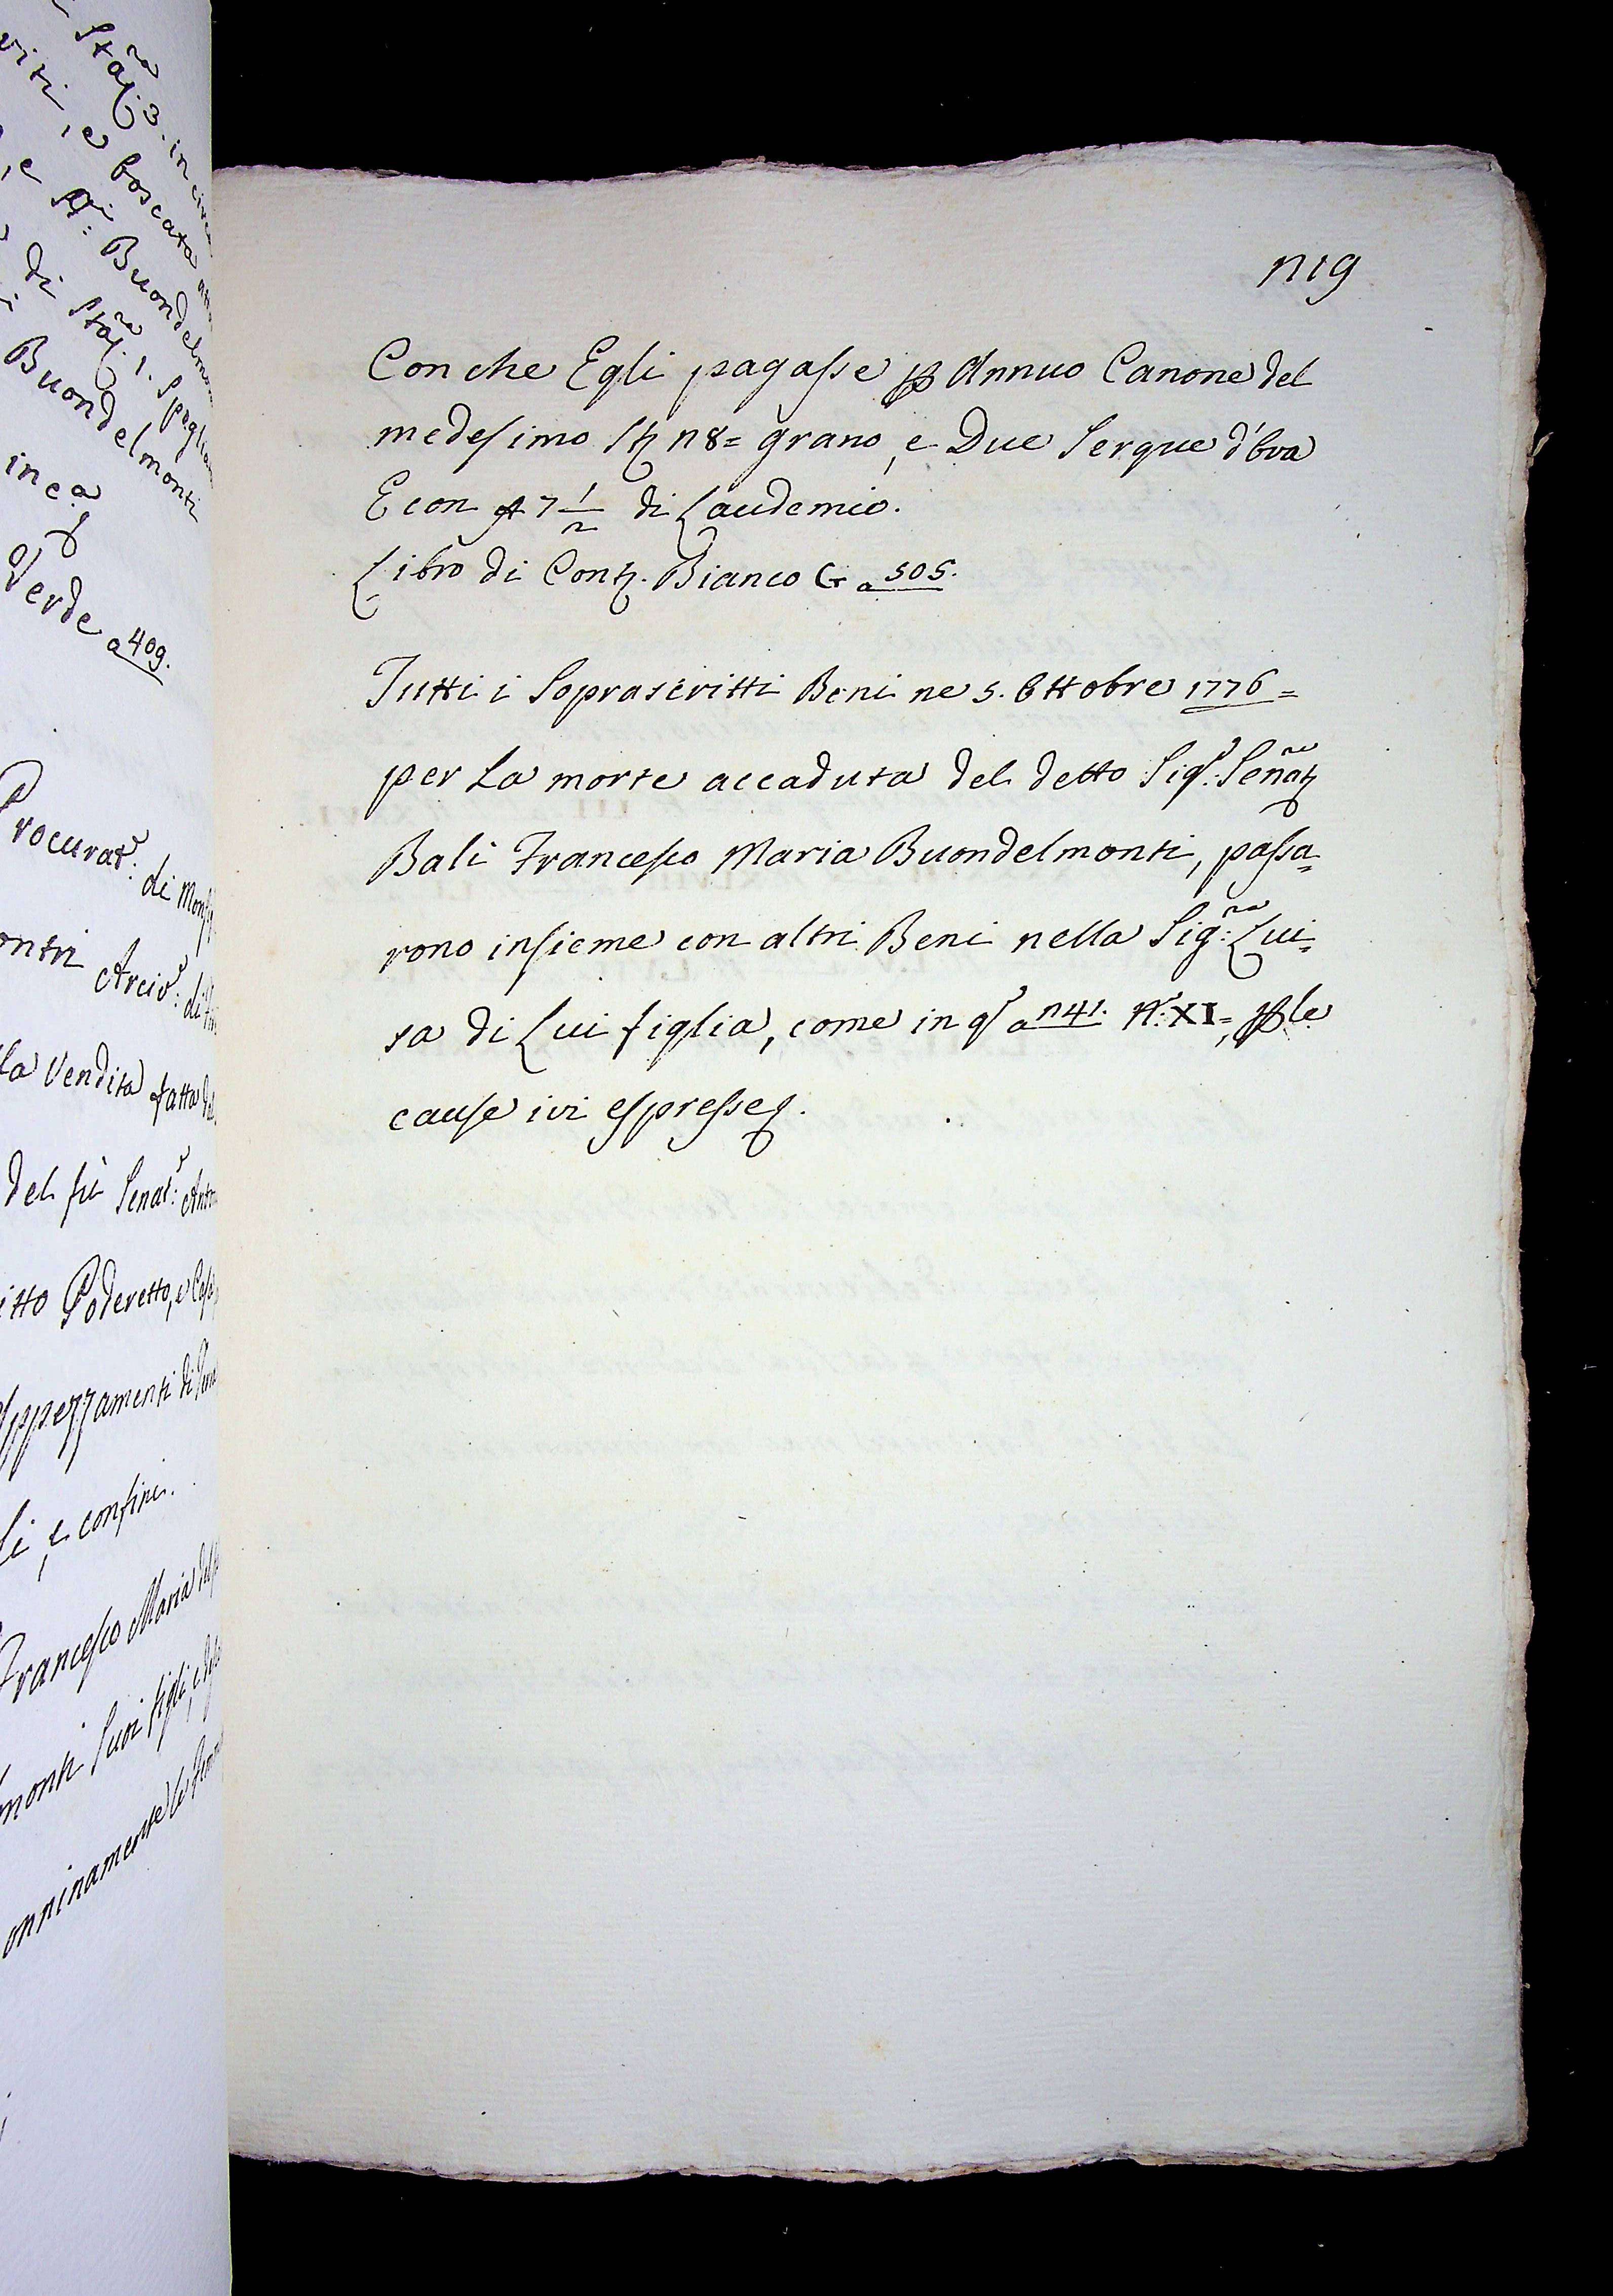 Sta.ra 3. in circa
e boscata
e SS.ri: Buondelmon
di Sta.ra 1.
Buondelmonti
in ca
Verde a 409.
Procurat.r: di Mons
Arciv.o: di
la Vendita fatta
del fù Senat.r: Anto
itto Poderetto, e Casa
Appezzamenti di
li, e confini.
Francesco Maria del
monti Suoi figli, e
onninamente le
219
Con che Egli pagasse p Annuo Canone del
medesimo St 28= grano, e Due Serque d'Ova
E con 7 1/2 di Laudemio.
Libro di Cont. Bianco G a 505.
Tutti i Soprascritti Beni ne 5. Ottobre 1776=
per La morte accaduta del detto Sig.r: Senat.re
Bali Francesco Maria Buondelmonti, passa=
rono insieme con altri Beni nella Sig.ra: Lui=
sa di Lui figlia, come in q.o a 241. N.o: XI=, p le
cause ivi espresse.